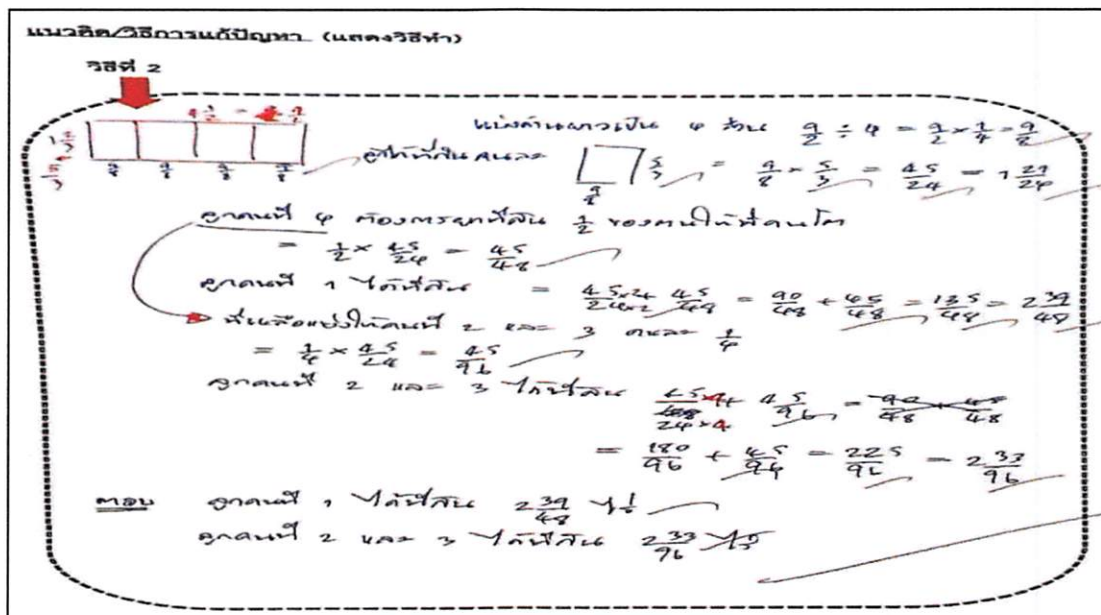 แนวคิด/วิธีการแก้ปัญหา (แสดงวิธีทำ)
วิธีที่ 2
4 1/2 = 9/2
1 2/3 = 5/3
9/8 9/8 9/8 9/8
แบ่งด้านยาวเป็น 4 ส่วน 9/2 ÷ 4 = 9/2 × 1/4 = 9/8
ลูกได้ที่ดินคนละ 9/8 5/3 = 9/8 × 5/3 = 45/24 = 1 21/24
ลูกคนที่ 4 ต้องการยกที่ดิน 1/2 ของตนให้พี่คนโต
= 1/2 × 45/24 = 45/48
ลูกคนที่ 1 ได้ที่ดิน = 45×2/24×2 + 45/48 = 90/48 + 45/48 = 135/48 = 2 39/48
ที่เหลือแบ่งให้คนที่ 2 และ 3 คนละ 1/4
= 1/4 × 45/24 = 45/96
ลูกคนที่ 2 และ 3 ได้ที่ดิน 45×4/24×4 + 45/96 = 90/48 + 45/48
= 180/96 + 45/96 = 225/96 = 2 33/96
ตอบ ลูกคนที่ 1 ได้ที่ดิน 2 39/48 ไร่
ลูกคนที่ 2 และ 3 ได้ที่ดิน 2 33/96 ไร่